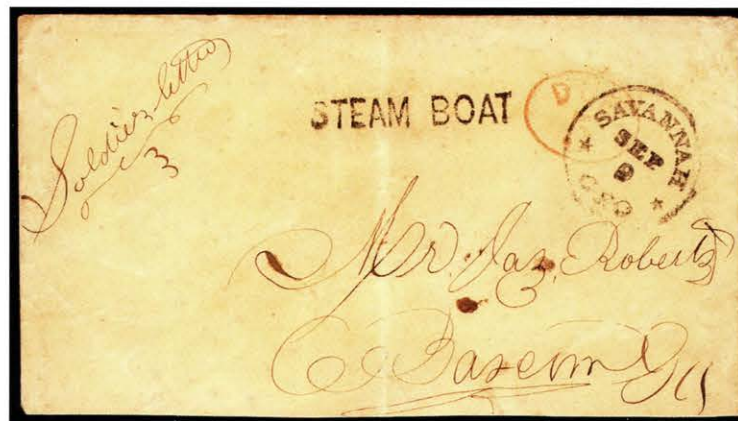 Soldier's letter
3
STEAM BOAT
D
SAVANNAH
SEP
9
GEO
Mr. Jas. Roberts
Bascom Ga